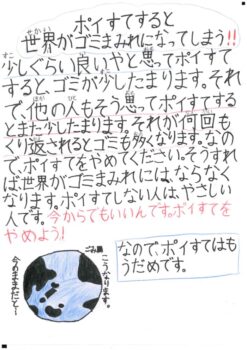 ポイすてすると
世界がゴミまみれになってしまう!!
少しぐらい良いやと思ってポイすて
すると、ゴミが少したまります。それ
で、他の人もそう思ってポイすてする
とまた少したまります。それが何回も
くり返されるとゴミも多くなります。なの
でポイすてをやめてください。そうすれ
ば世界がゴミまみれには、ならなく
なります。ポイすてしない人は、やさしい
人です。今からでもいいんです。ポイすてを
やめよう!
なので、ポイすてはも
うだめです。
こうなります。
今のままだと〜